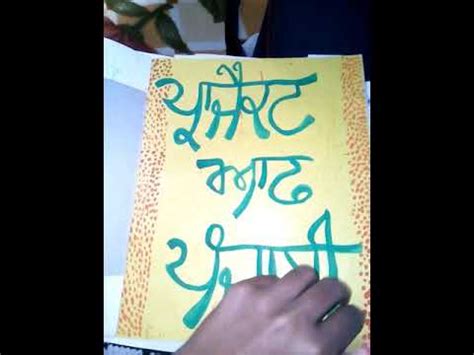 ਪ੍ਰਾਜੈਕਟ
ਆਫ
ਪੰਜਾਬੀ